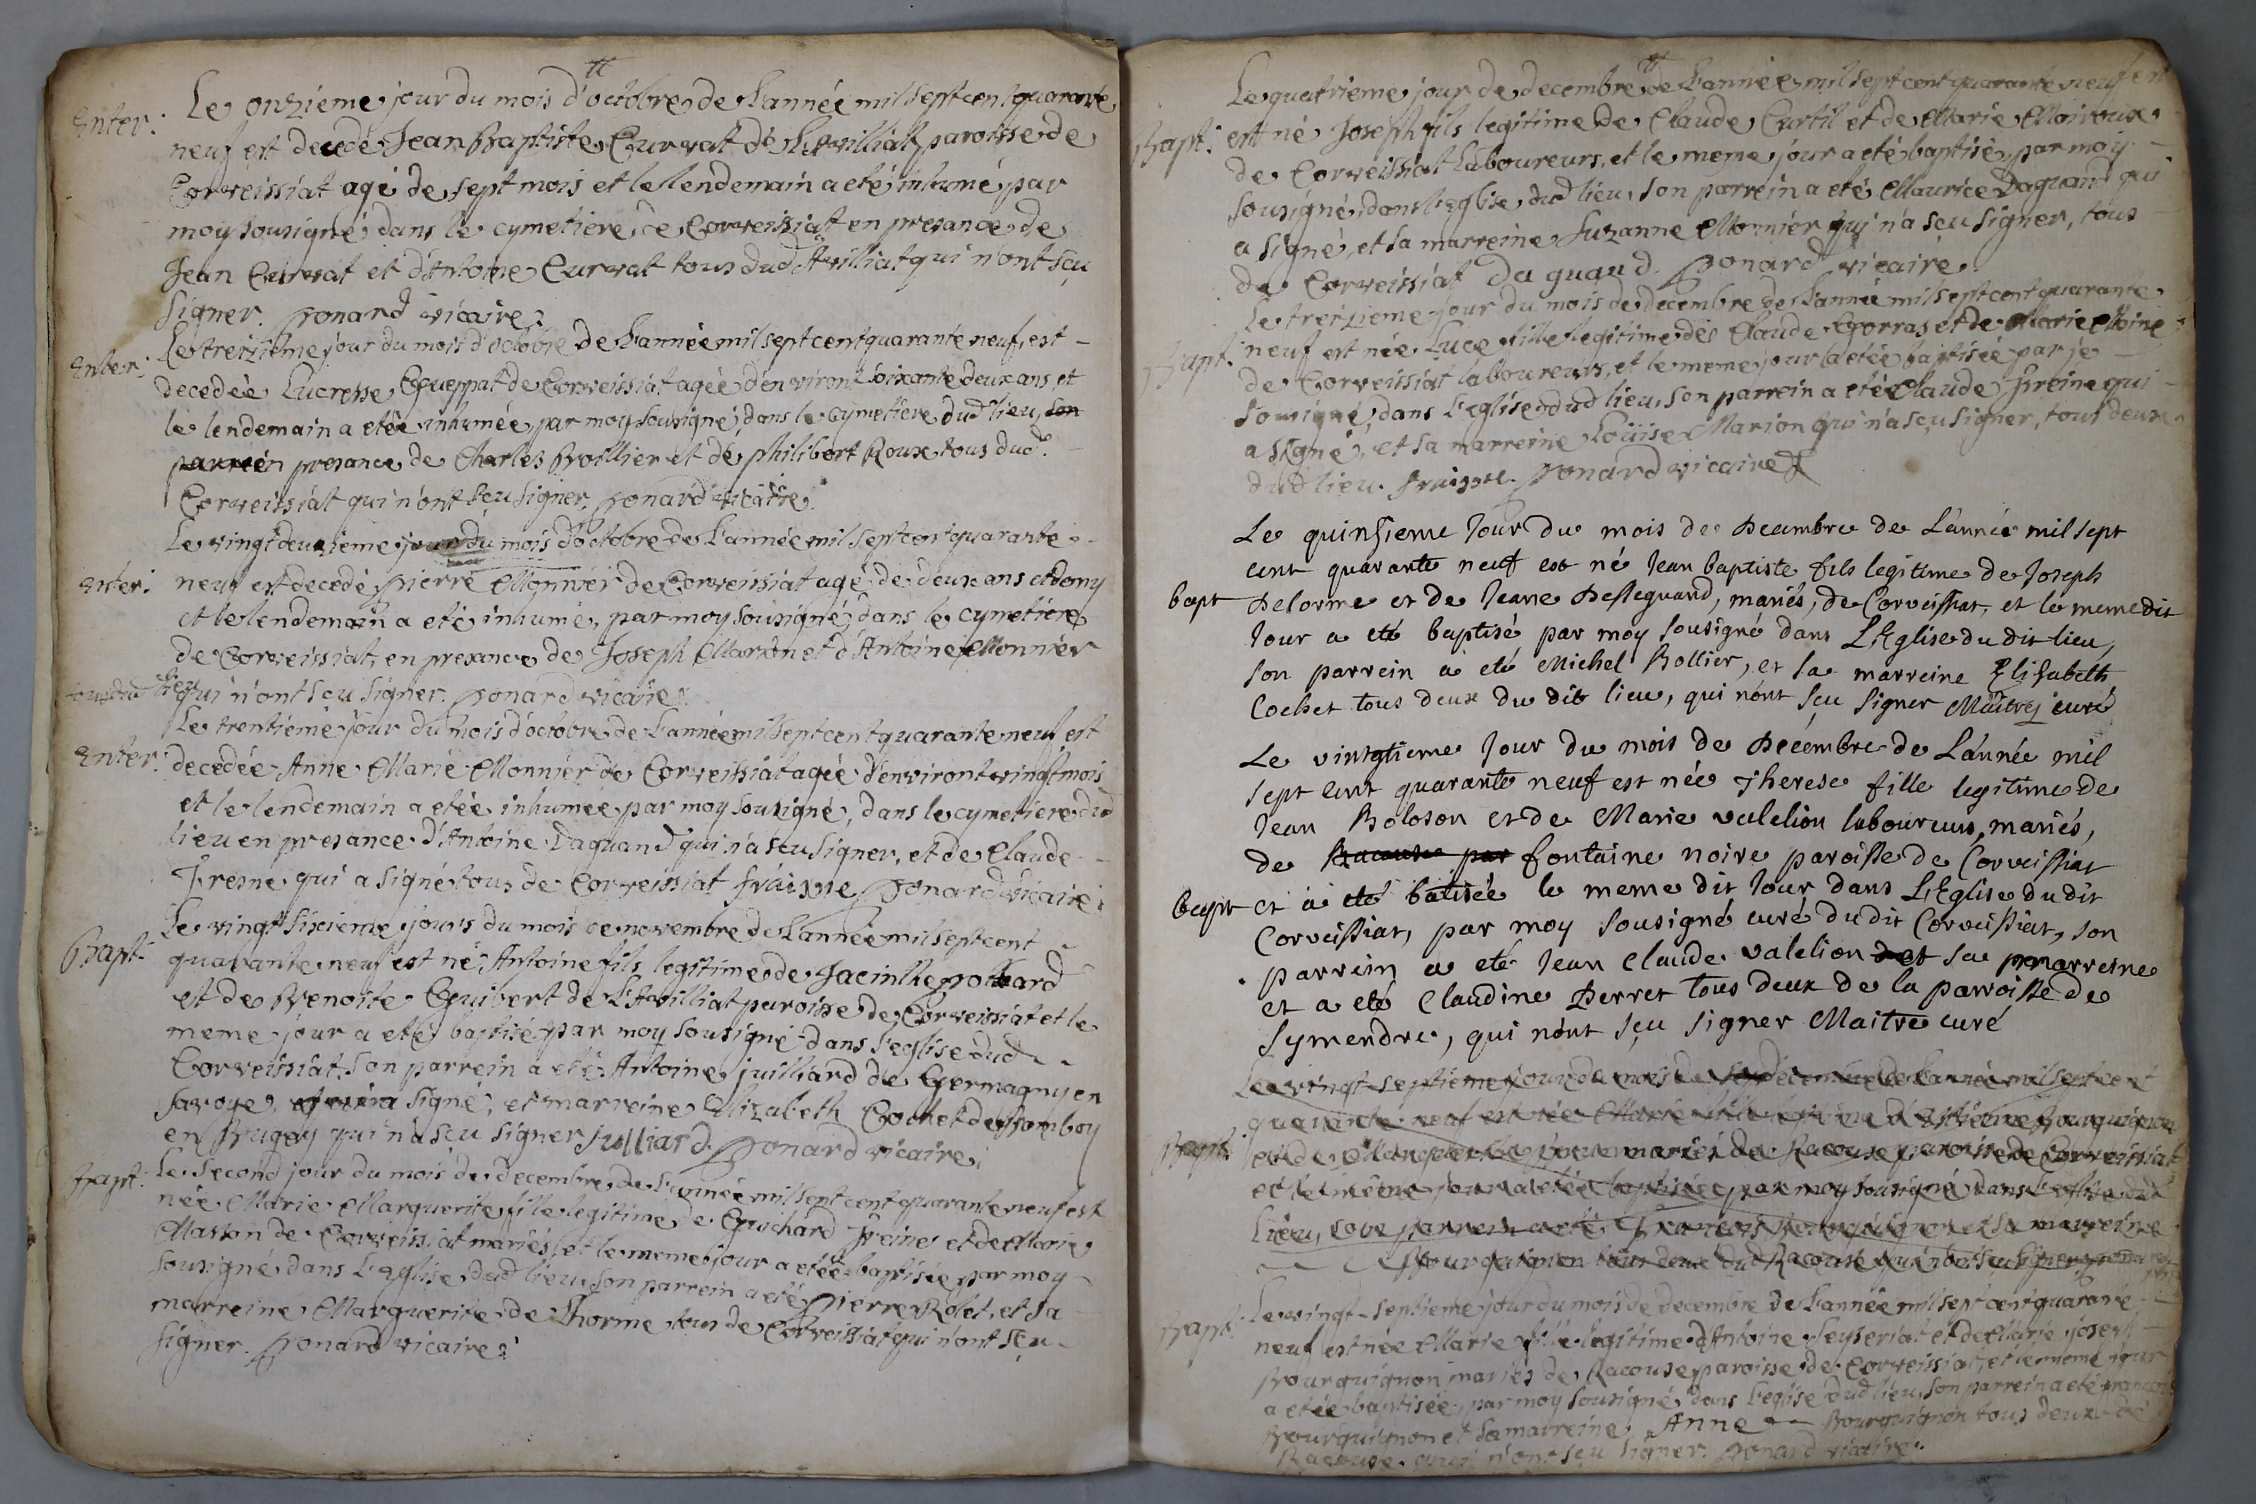 Enter: Le onzieme jour du mois d'octobre de L'année mil sept cent quarante
neuf est decedé Jean Baptiste Curvat de paroisse de
Corveissiat agé de sept mois et le lendemain a eté inhumé par
moy sousigné dans le cymetiere de Corveissiat en presance de
Jean Curvat et d'Antoine Curvat tous dud Avilliat qui n'ont sçu
signer. ponard vicaire.
Enter: Le treizieme jour du mois d'octobre de L'année mil sept cent quarante neuf, est
decedée Lucresse Gueppat de Corveissiat agée d'environt soixante deux ans, et
le lendemain a etée inhumée par moy sousigné, dans le cymetiere dud lieu, son
parrein presance de Charles Bollier et de philibert Roux tous dud.
Corveissiat qui n'ont sçu signer. ponard vicaire.
Le vingt deuxieme jour du mois d'octobre de L'année mil sept cent quarante
Enter: neuf est decedé pierre Monnier de Corveissiat agé de deux ans et demy
et le lendemain a eté inhumé, par moy sousigné, dans le cymetiere
de Corveissiat, en presance de Joseph Marion et d'Antoine Monnier
tous dud lieu qui n'ont sçu signer. ponard vicaire.
Le trentieme jour du mois d'octobre de L'année mil sept cent quarante neuf est
Enter: decedée Anne Marie Monnier de Corveissiat agée d'environt vingt mois
et le lendemain a etée inhumée par moy sousigné, dans le cymetiere dud
lieu en presance d'Antoine Daguand qui n'a sçu signer, et de Claude
Fresne qui a signé tous de Corveissiat fraisne ponard vicaire.
Le vingt sixieme jours du mois de novembre de L'année mil sept cent
Bapt: quarante neuf est né Antoine fils legitime de Jacinthe
et de Benoite Guibert de paroisse de Corveissiat et le
meme jour a eté baptisé par moy sousigné dans l'eglise dud
Corveissiat, son parrein a eté Antoine juilliard de Germagny en
savoye, a signé, et marreine Elizabeth Cochet
en Bugey qui n'a sçu signer Julliard. ponard vicaire.
Bapt: Le second jour du mois de decembre de L'année mil sept cent quarante neuf est
née Marie Marguerite fille legitime de Guichard Freine et de Marie
Masson de Corveissiat mariés, et le meme jour a etée baptisée par moy
sousigné dans L'eglise dud lieu, son parrein a eté pierre Rolet, et sa
marreine Marguerite de Lhorme tous de Corveissiat qui n'ont sçu
signer. ponard vicaire.
Le quatrieme jour de decembre de L'année mil sept cent quarante neuf en
Bapt: est né Joseph fils legitime de Claude Curtil et de Marie
de Corveissiat Laboureurs, et le meme jour a eté baptisé par moy
sousigné, dans l'Eglise dud lieu, son parrein a eté Maurice Daguand qui
a signé, et sa marreine Suzanne Monnier qui n'a sçu signer, tous
de Corveissiat Daguand. ponard vicaire.
Le treizieme jour du mois de decembre de L'année mil sept cent quarante
Bapt: neuf est née Luce fille legitime de Claude Gorras et de Marie Moine
de Corveissiat laboureurs, et le meme jour a etée baptisée par je
sousigné, dans L'eglise dud lieu, son parrein a eté Claude Freine qui
a signé, et sa marreine Loüise Marion qui n'a sçu signer, tous deux
dud lieu. fraisne. ponard vicaire
Le quinsieme Jour du mois de Decembre de L'année mil sept
cent quarante neuf est né Jean baptiste fils legitime de Joseph
bapt Delorme et de Jeane Desleguand, mariés, de Corveissiat, et le meme dit
Jour a eté baptisé par moy sousigné dans L'Eglise du dit lieu,
son parrein a eté Michel Bollier, et sa marreine Elisabeth
Cochet tous deux du dit lieu, qui nont sçu signer Maitrej curé
Le vintgtieme Jour du mois de Decembre de L'année mil
sept cent quarante neuf est née Therese fille legitime de
Jean Boloson et de Marie valelion laboureurs, mariés,
de Racouse par fontaine noire paroisse de Corveissiat
bapt et a eté batisée le meme dit Jour dans L'Eglise du dit
Corveissiat, par moy sousigné curé du dit Corveissiat, son
parrein a eté Jean Claude valelion et sa marreine
et a eté Claudine Perret tous deux de la parroisse de
Symendre, qui nont sçu signer Maitre curé
Le vingt-septieme jour du mois de decembre de L'année mil sept cent
quarante neuf est née Marie fille legitime
Bapt: et de mariés de Racouse paroisse de Corveissiat
et le meme jour a etée baptisée par moy sousigné dans L'eglise dud
Lieu, son parrein a eté François Bourguignon et sa marreine
Bourguignon tous deux dud Racouse qui n'ont sçu signer ponard
Bapt: Le vingt-septieme jour du mois de decembre de L'année mil sept cent quarante
neuf est née Marie fille legitime d'Antoine Seyseriat et de Marie josep
Bourguignon mariés de Racouse paroisse de Corveissiat, et le meme jour
a etée baptisée par moy sousigné, dans l'eglise dud lieu, son parrein a eté françois
Bourguignon et sa marreine Anne Bourguignon tous deux de
Racouse qui n'ont sçu signer. ponard vicaire.